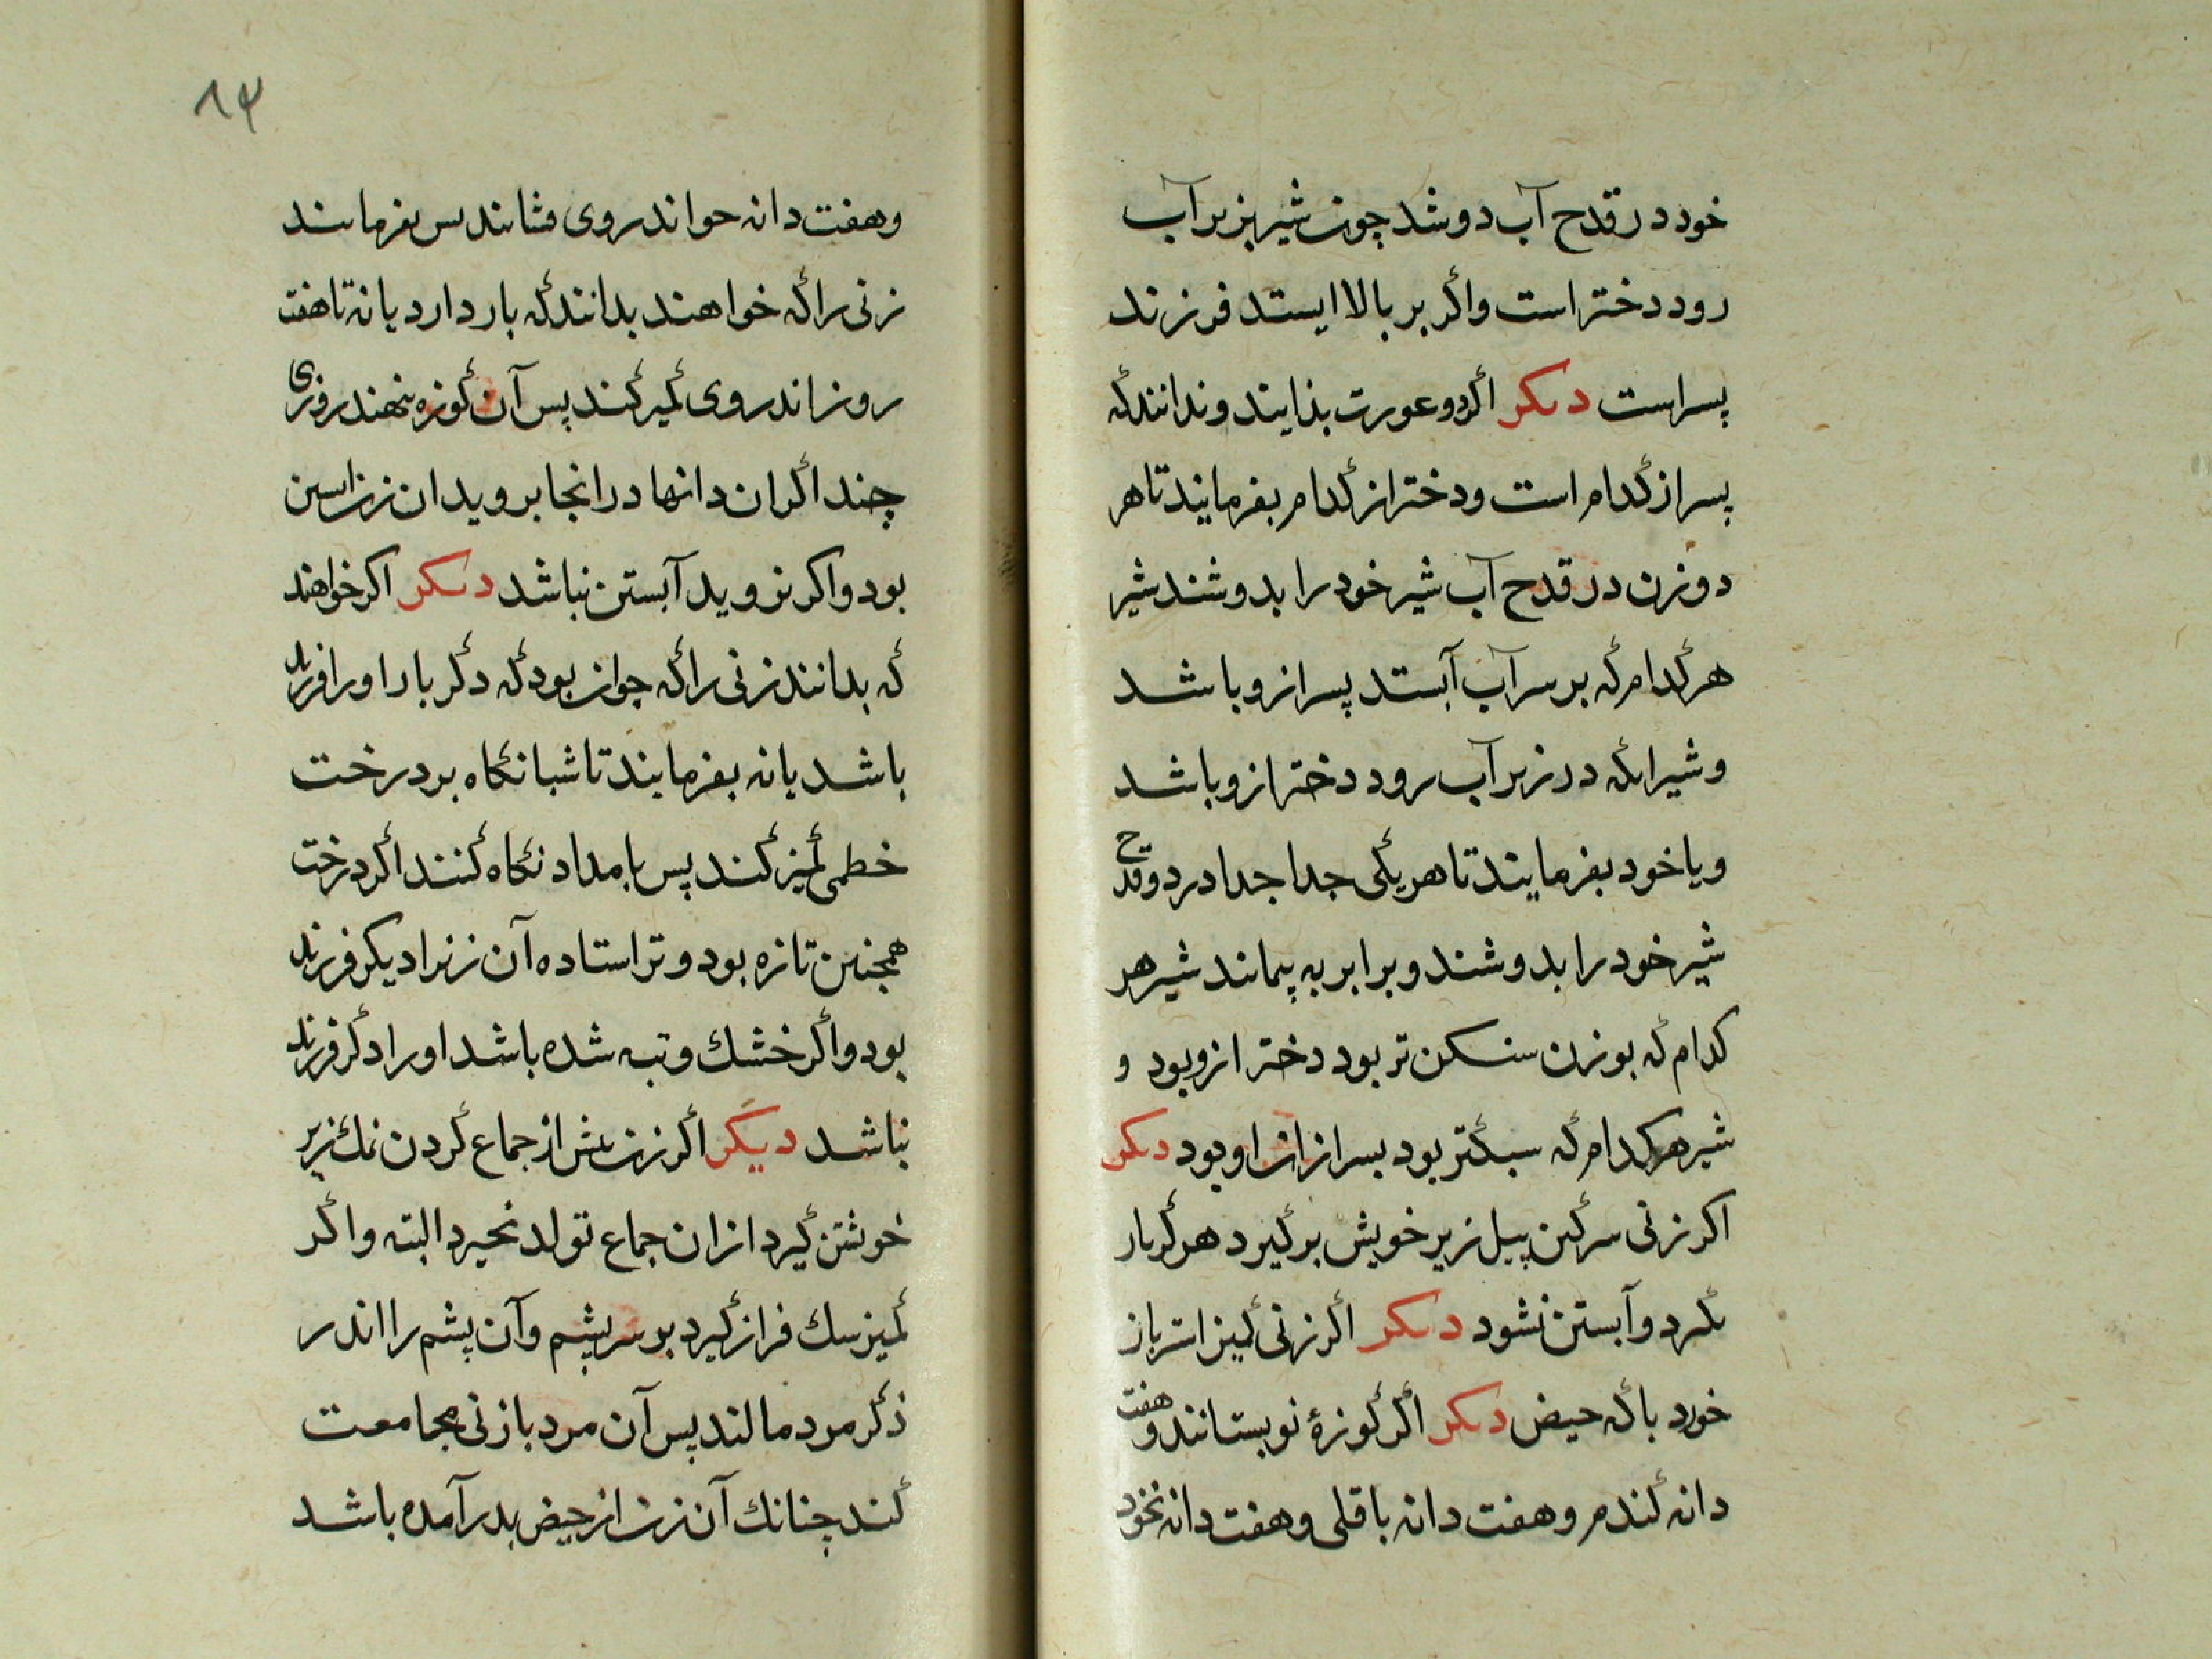 خود در قدح آب دوشد چون شیر بزیر آب
رود دختر است واکر بر بالا ایستد فرزند
پسر است دیکر اکر دو عورت بزایند وندانند که
پسر از کدام است ودختر از کدام بفرمایند تا هر
دو زن در قدح آب شیر خود را بدوشند شیر
هر کدام که بر سر آب آیستد پسر ازو باشد
وشیر انکه در زیر آب رود دختر ازو باشد
ویا خود بفرمایند تا هر یکی جدا جدا در دو قدح
شیر خود را بدوشند وبرابر به پیمانند شیر هر
کدام که بوزن سنکین تر بود دختر ازو بود و
شیر هر کدام که سبکتر بود پسر از ان او بود دیکر
اکر زنی سرکین پیل زیر خویش برکیرد هر کز بار
نکیرد وآبستن نشود دیکر اکر زنی کمیز استر باز
خورد پاکه حیض دیکر اکر کوزهٔ نو بستانند و هفت
دانه کندم وهفت دانه باقلی وهفت دانه نخود
۸۴
وهفت دانه جو اندر وی فشانند پس بفرمایند
زنی را که خواهند بدانند که بار دارد یا نه تا هفت
روز اندر وی کمیز کند پس آن کوزه بنهند روزی
چند اکر ان دانها در انجا بروید ان زن ابستن
بود واکر نروید آبستن نباشد دیکر اکر خواهند
که بدانند زنی را که جوان بود که دکر بار اورا فرزند
باشد یا نه بفرمایند تا شبانکاه بر درخت
خطمی کمیز کند پس بامداد نکاه کنند اکر درخت
همچنین تازه بود وتر استاده آن زنرا دیکر فرزند
بود واکر خشك وتبه شده باشد اورا دکر فرزند
نباشد دیکر اکر زن پیش از جماع کردن نمك زیر
خوشتن کیرد ازان جماع تولد نخیرد البته واکر
کمیز سك فراز کیرد بر سر پشم وآن پشم را اندر
ذکر مرد مالند پس آن مرد با زنی مجامعت
کند چنانك آن زن از حیض بدر آمده باشد